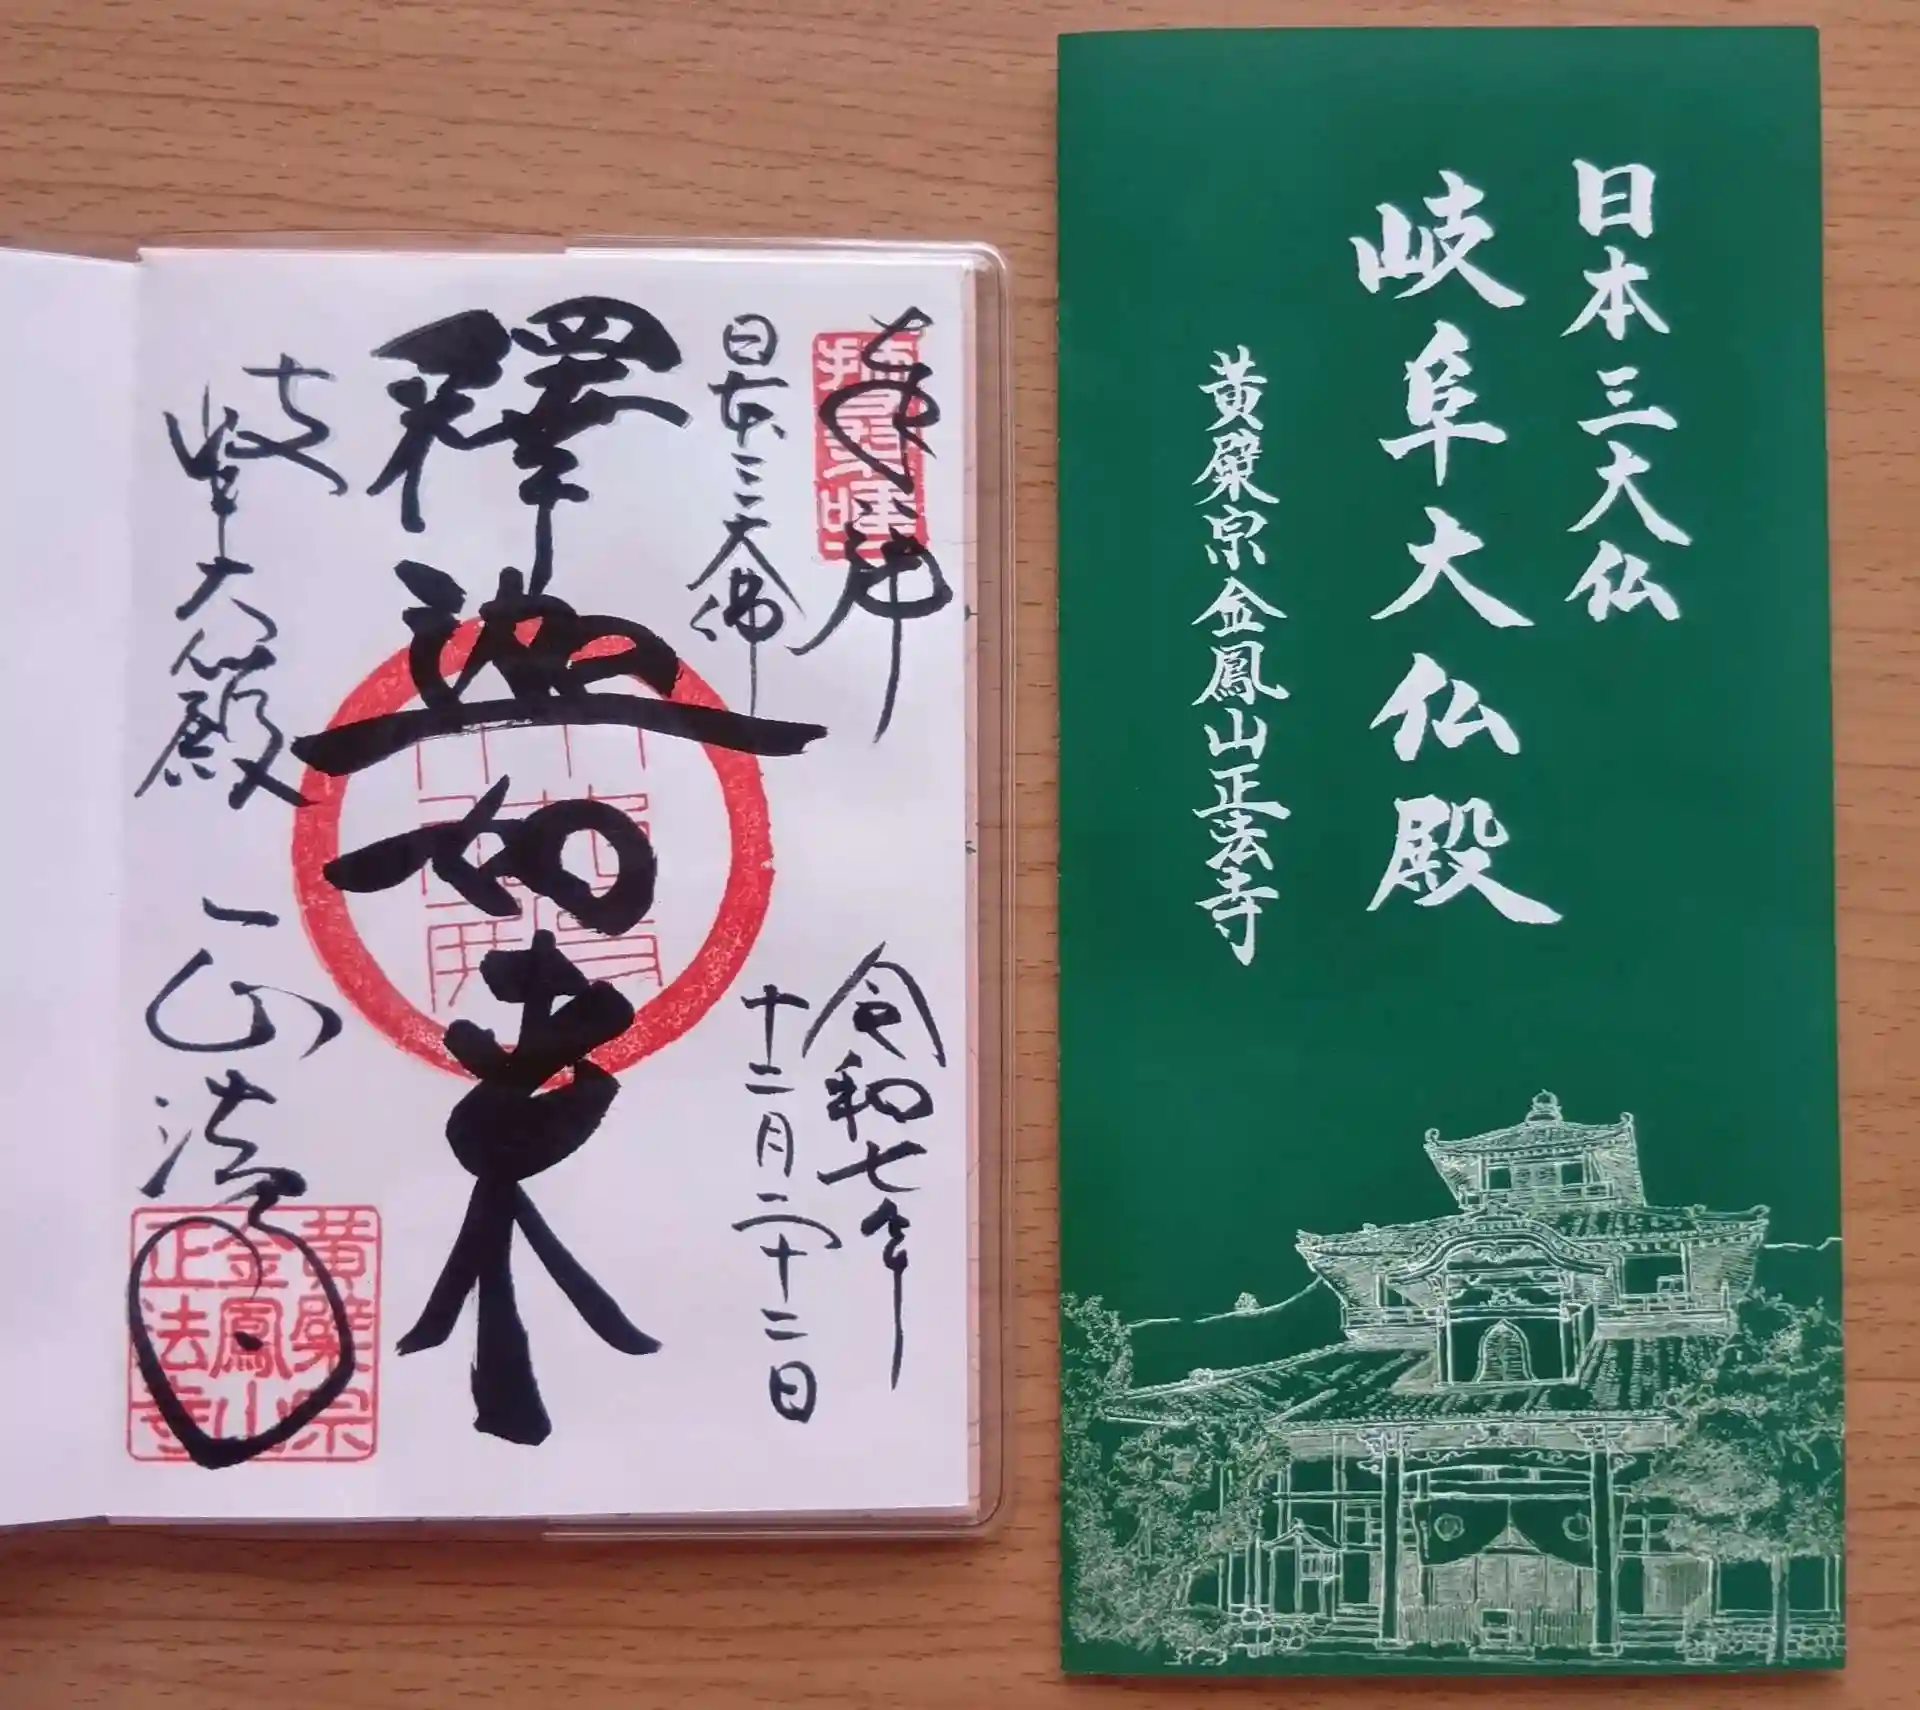 奉拝
日本三大佛
令和七年
十二月二十二日
釋迦如来
岐阜大仏殿
黄檗宗
金鳳山
正法寺
日本三大仏
岐阜大仏殿
黄檗宗金鳳山正法寺